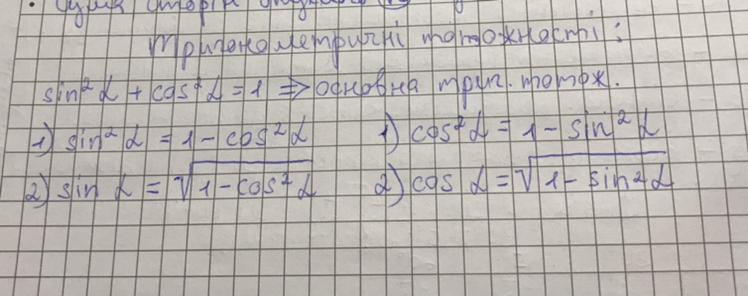 Тригонометричні тотожності:
sin²α + cos²α = 1 ⇒ основна триг. тотож.
1) sin²α = 1 - cos²α 1) cos²α = 1 - sin²α
2) sin α = √1 - cos²α 2) cos α = √1 - sin²α